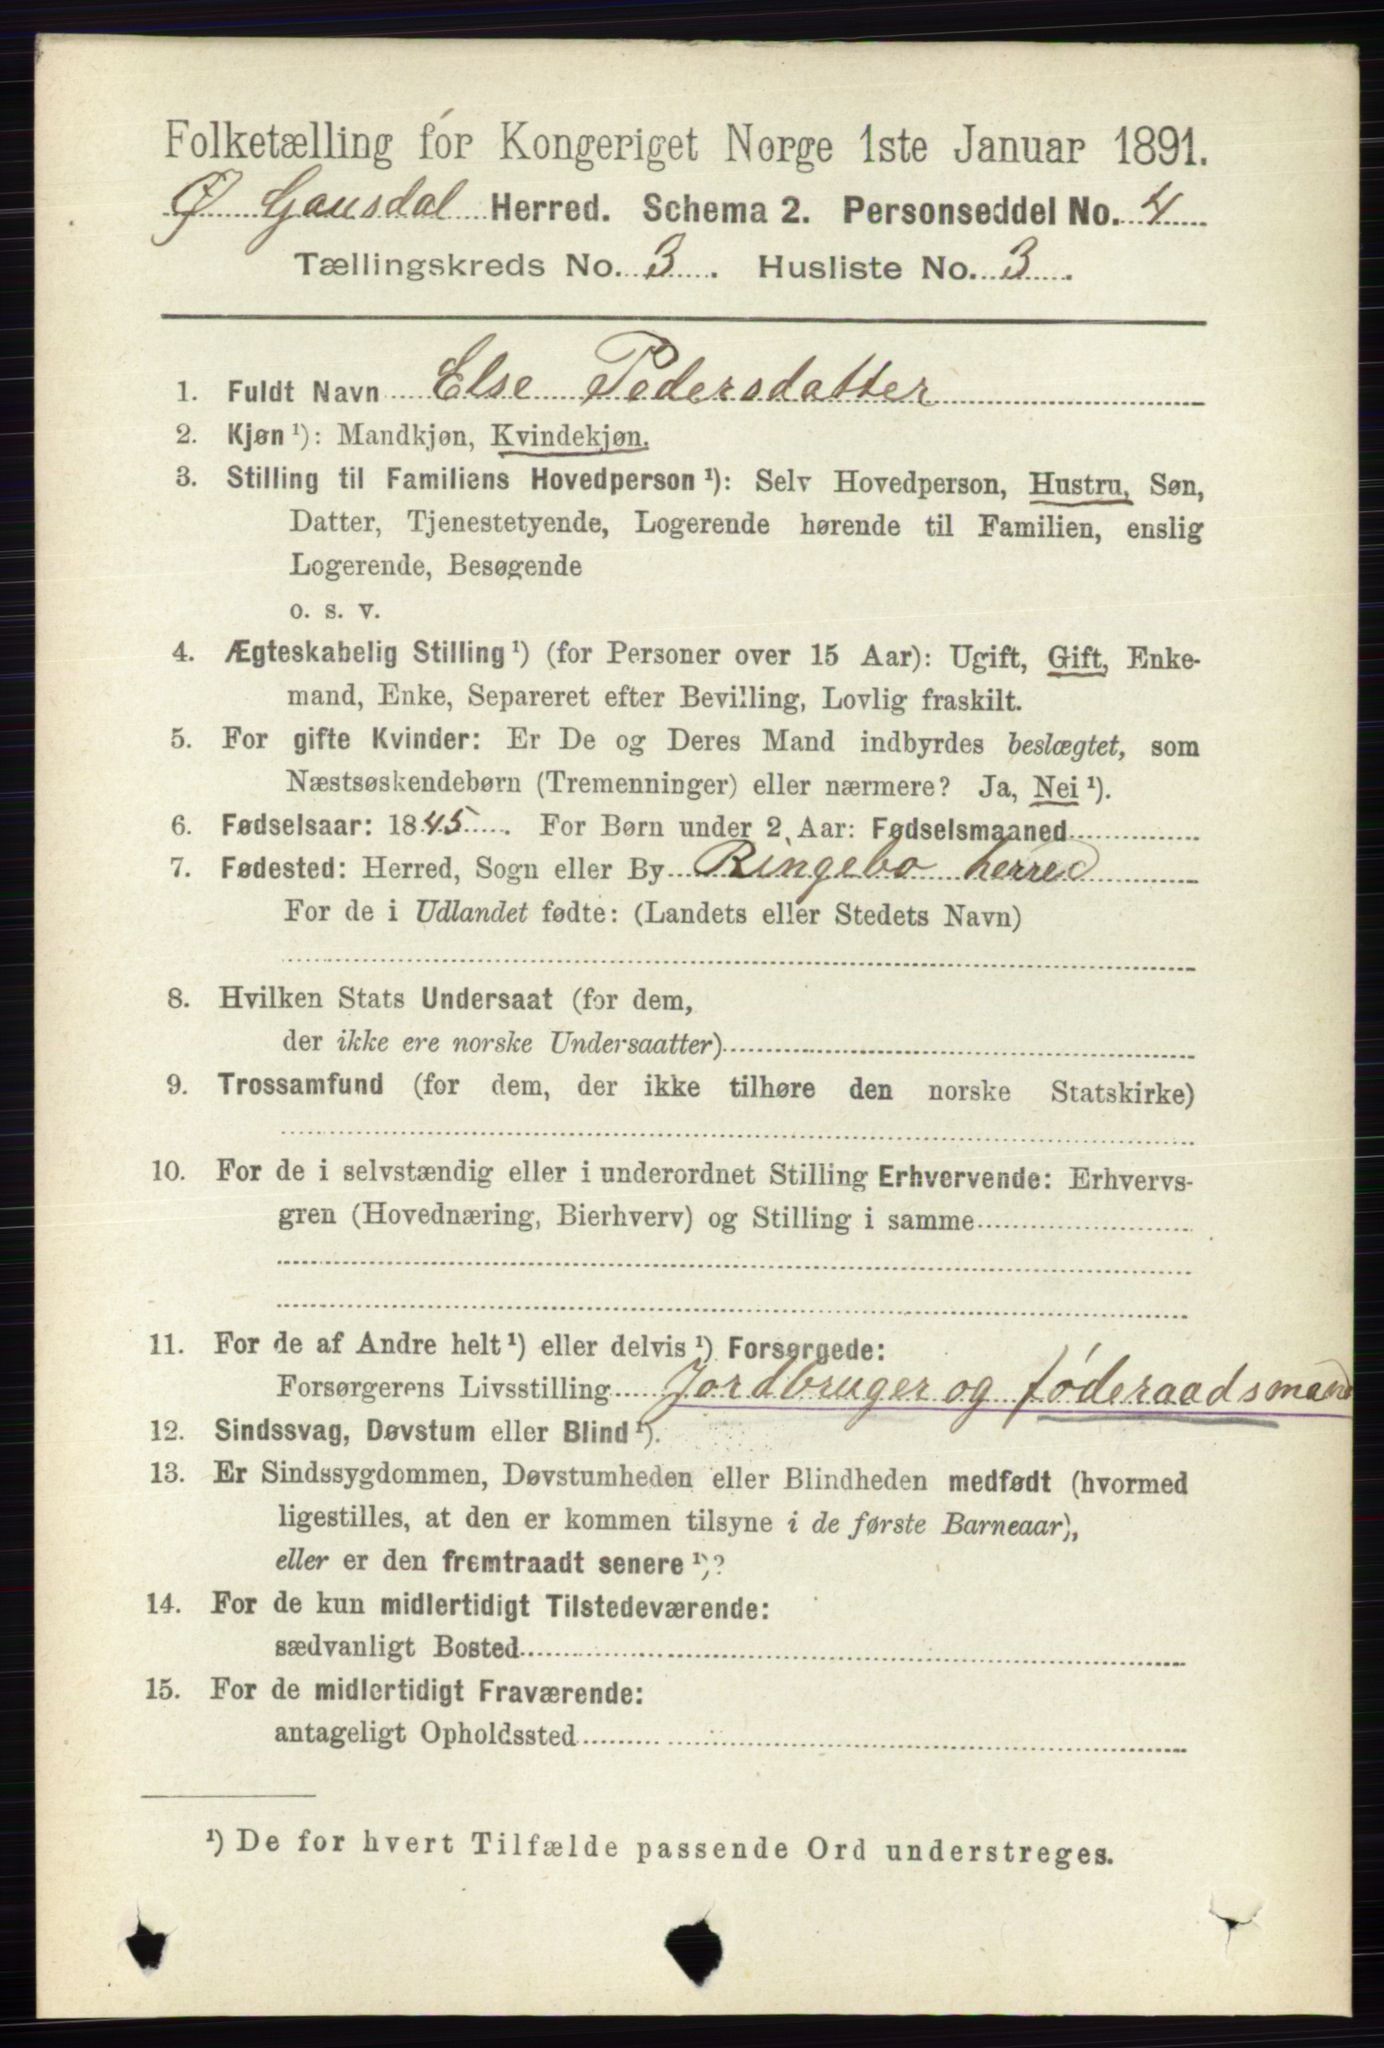 Folketælling for Kongeriget Norge 1ste Januar 1891.
Ø Gausdal Herred. Schema 2. Personseddel No. 4
Tællingskreds No. 3. Husliste No. 3.
1. Fuldt Navn Else Pedersdatter
2. Kjøn ¹): Mandkjøn, Kvindekjøn.
3. Stilling til Familiens Hovedperson ¹): Selv Hovedperson, Hustru, Søn,
Datter, Tjenestetyende, Logerende hørende til Familien, enslig
Logerende, Besøgende
o. s. v.
4. Ægteskabelig Stilling ¹) (for Personer over 15 Aar): Ugift, Gift, Enke-
mand, Enke, Separeret efter Bevilling, Lovlig fraskilt.
5. For gifte Kvinder: Er De og Deres Mand indbyrdes beslægtet, som
Næstsøskendebørn (Tremenninger) eller nærmere? Ja, Nei ¹).
6. Fødselsaar: 1845. For Børn under 2 Aar: Fødselsmaaned
7. Fødested: Herred, Sogn eller By Ringebo herred
For de i Udlandet fødte: (Landets eller Stedets Navn)
8. Hvilken Stats Undersaat (for dem,
der ikke ere norske Undersaatter)
9. Trossamfund (for dem, der ikke tilhøre den norske Statskirke)
10. For de i selvstændig eller i underordnet Stilling Erhvervende: Erhvervs-
gren (Hovednæring, Bierhverv) og Stilling i samme
11. For de af Andre helt ¹) eller delvis ¹) Forsørgede:
Forsørgerens Livsstilling Jordbruger og føderaadsmand
12. Sindssvag, Døvstum eller Blind ¹).
13. Er Sindssygdommen, Døvstumheden eller Blindheden medfødt (hvormed
ligestilles, at den er kommen tilsyne i de første Barneaar),
eller er den fremtraadt senere ¹)?
14. For de kun midlertidigt Tilstedeværende:
sædvanligt Bosted
15. For de midlertidigt Fraværende:
antageligt Opholdssted
¹) De for hvert Tilfælde passende Ord understreges.